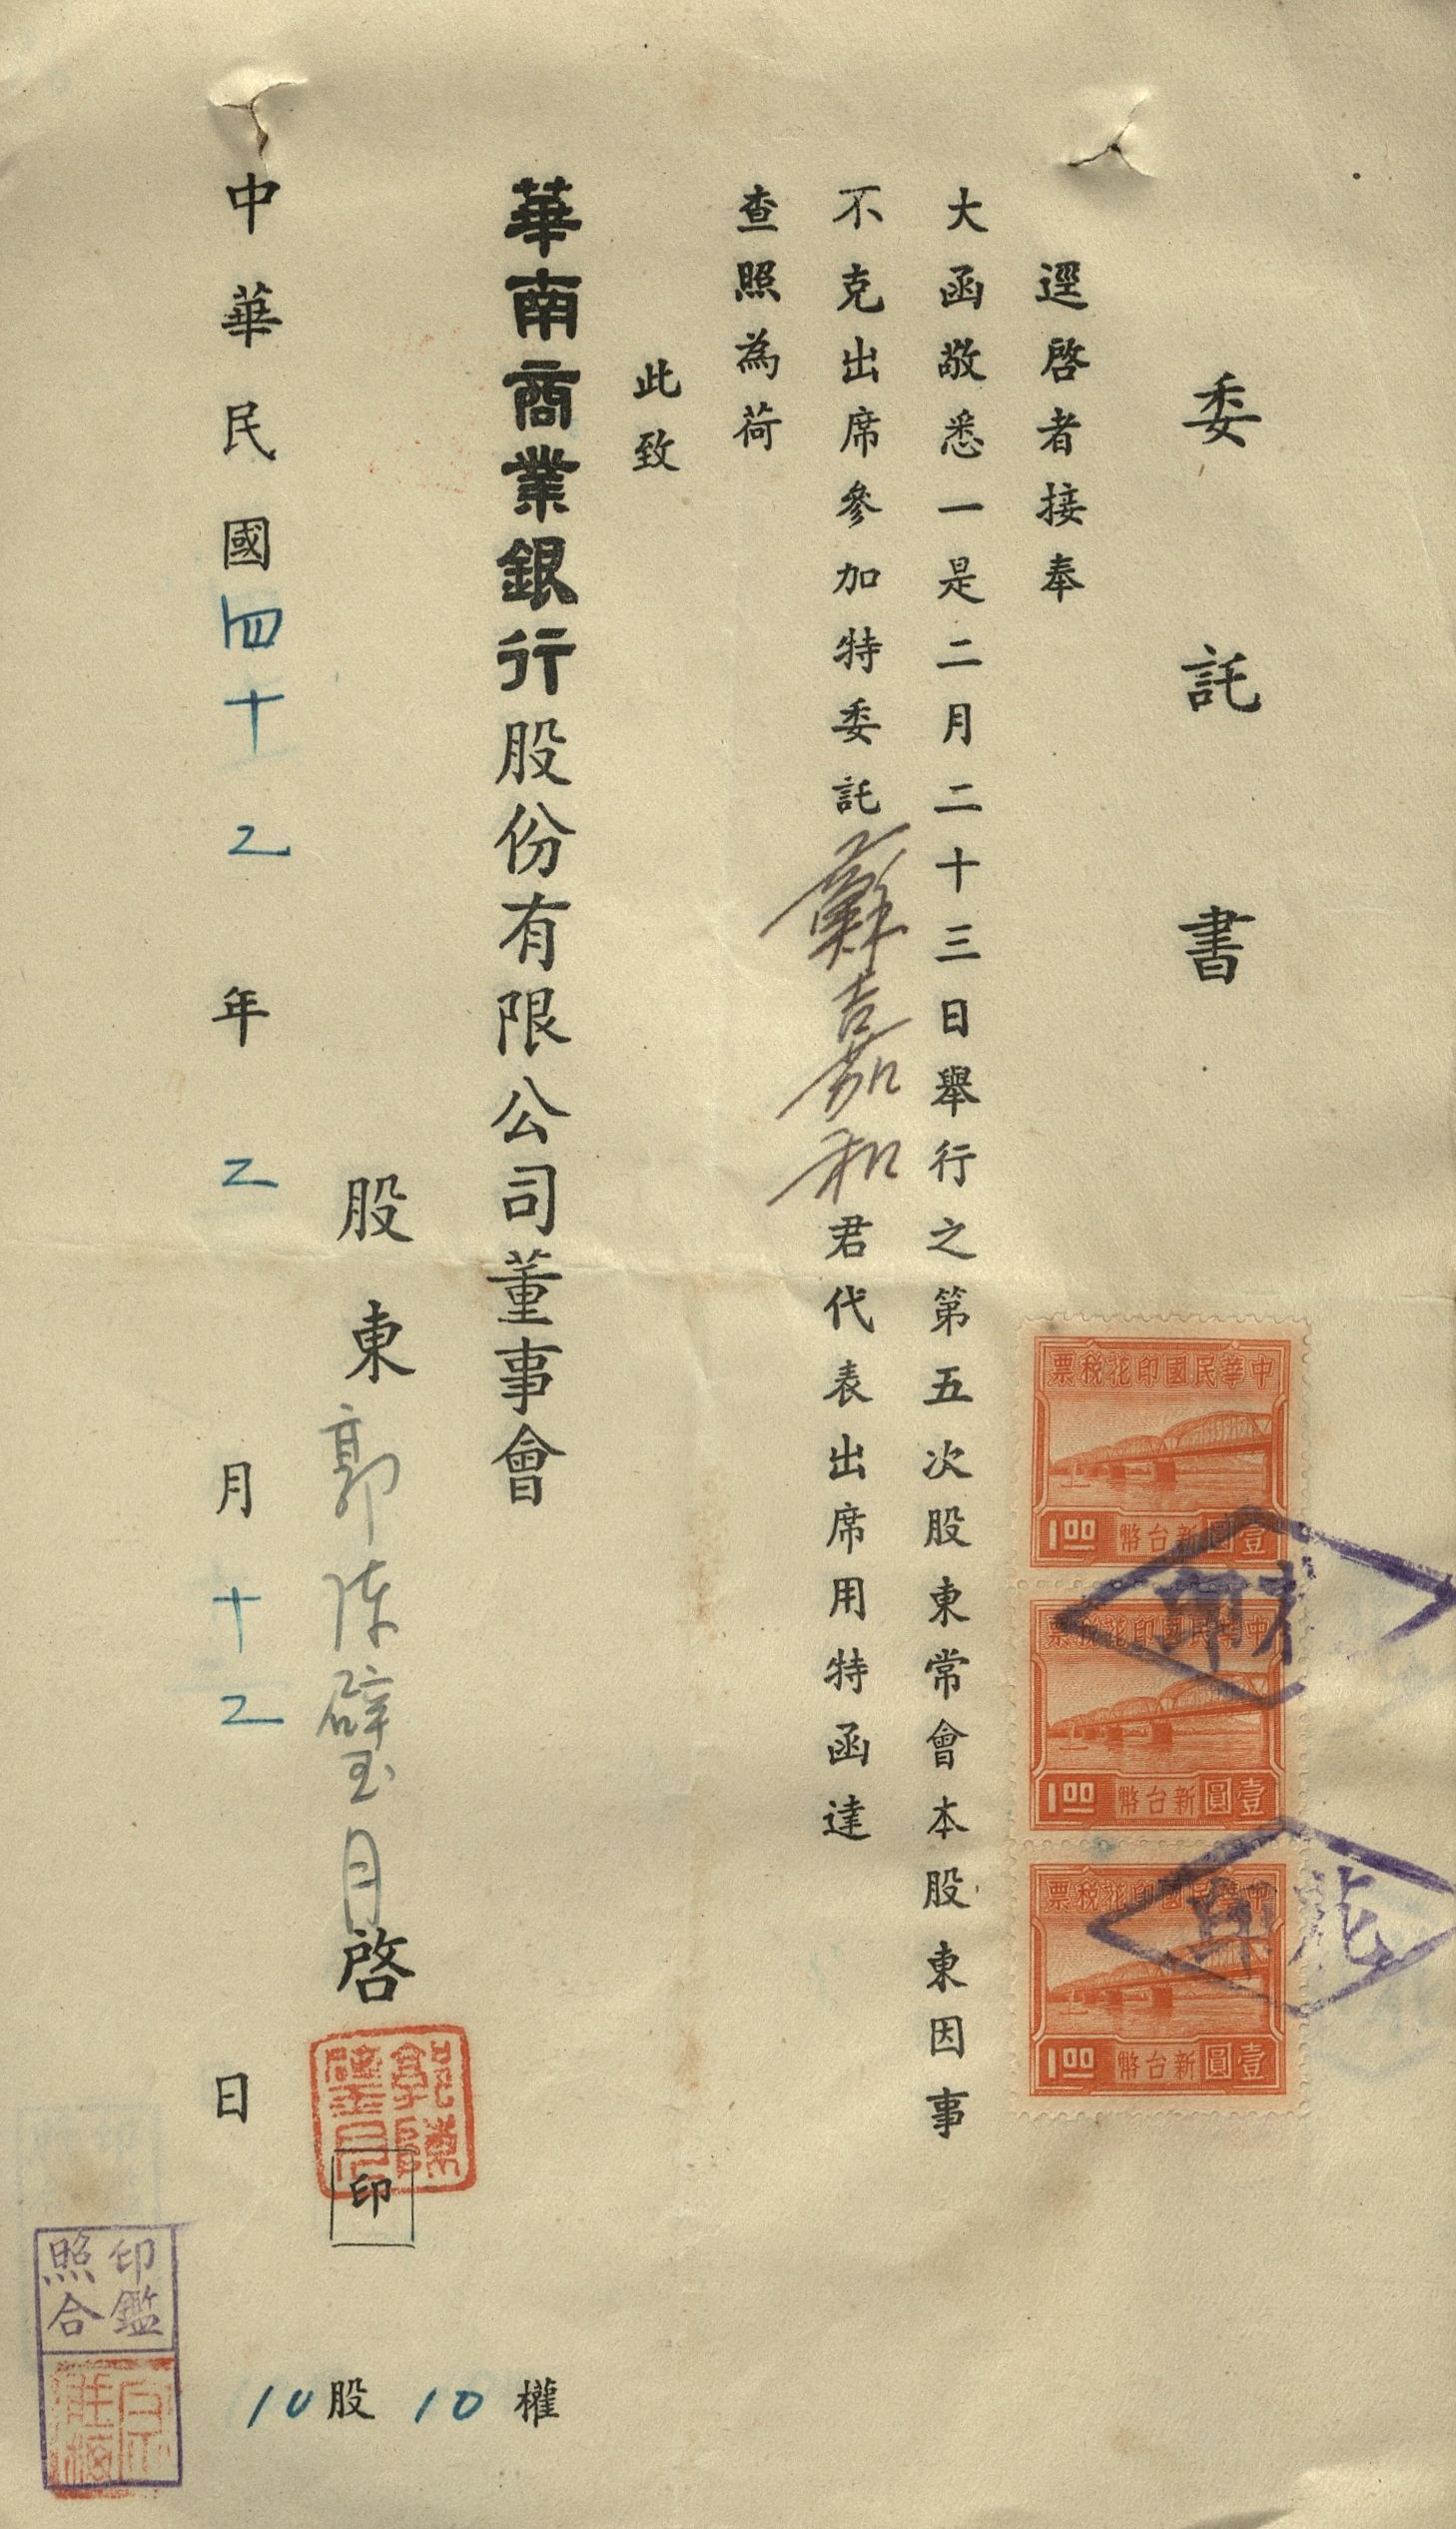 委託書
逕啓者接奉
大函敬悉一是二月二十三日舉行之第五次股東常會本股東因事
不克出席參加特委託蘇嘉和君代表出席用特函達
查照為荷
此致
華南商業銀行股份有限公司董事會
股東郭陳璧月啓
印
郭陳璧月
中華民國四十乙年乙月十乙日
10股10權
印鑑
照合
中華民國印花稅票
1.00 新台幣壹圓
中華民國印花稅票
1.00 新台幣壹圓
中華民國印花稅票
1.00 新台幣壹圓
印花